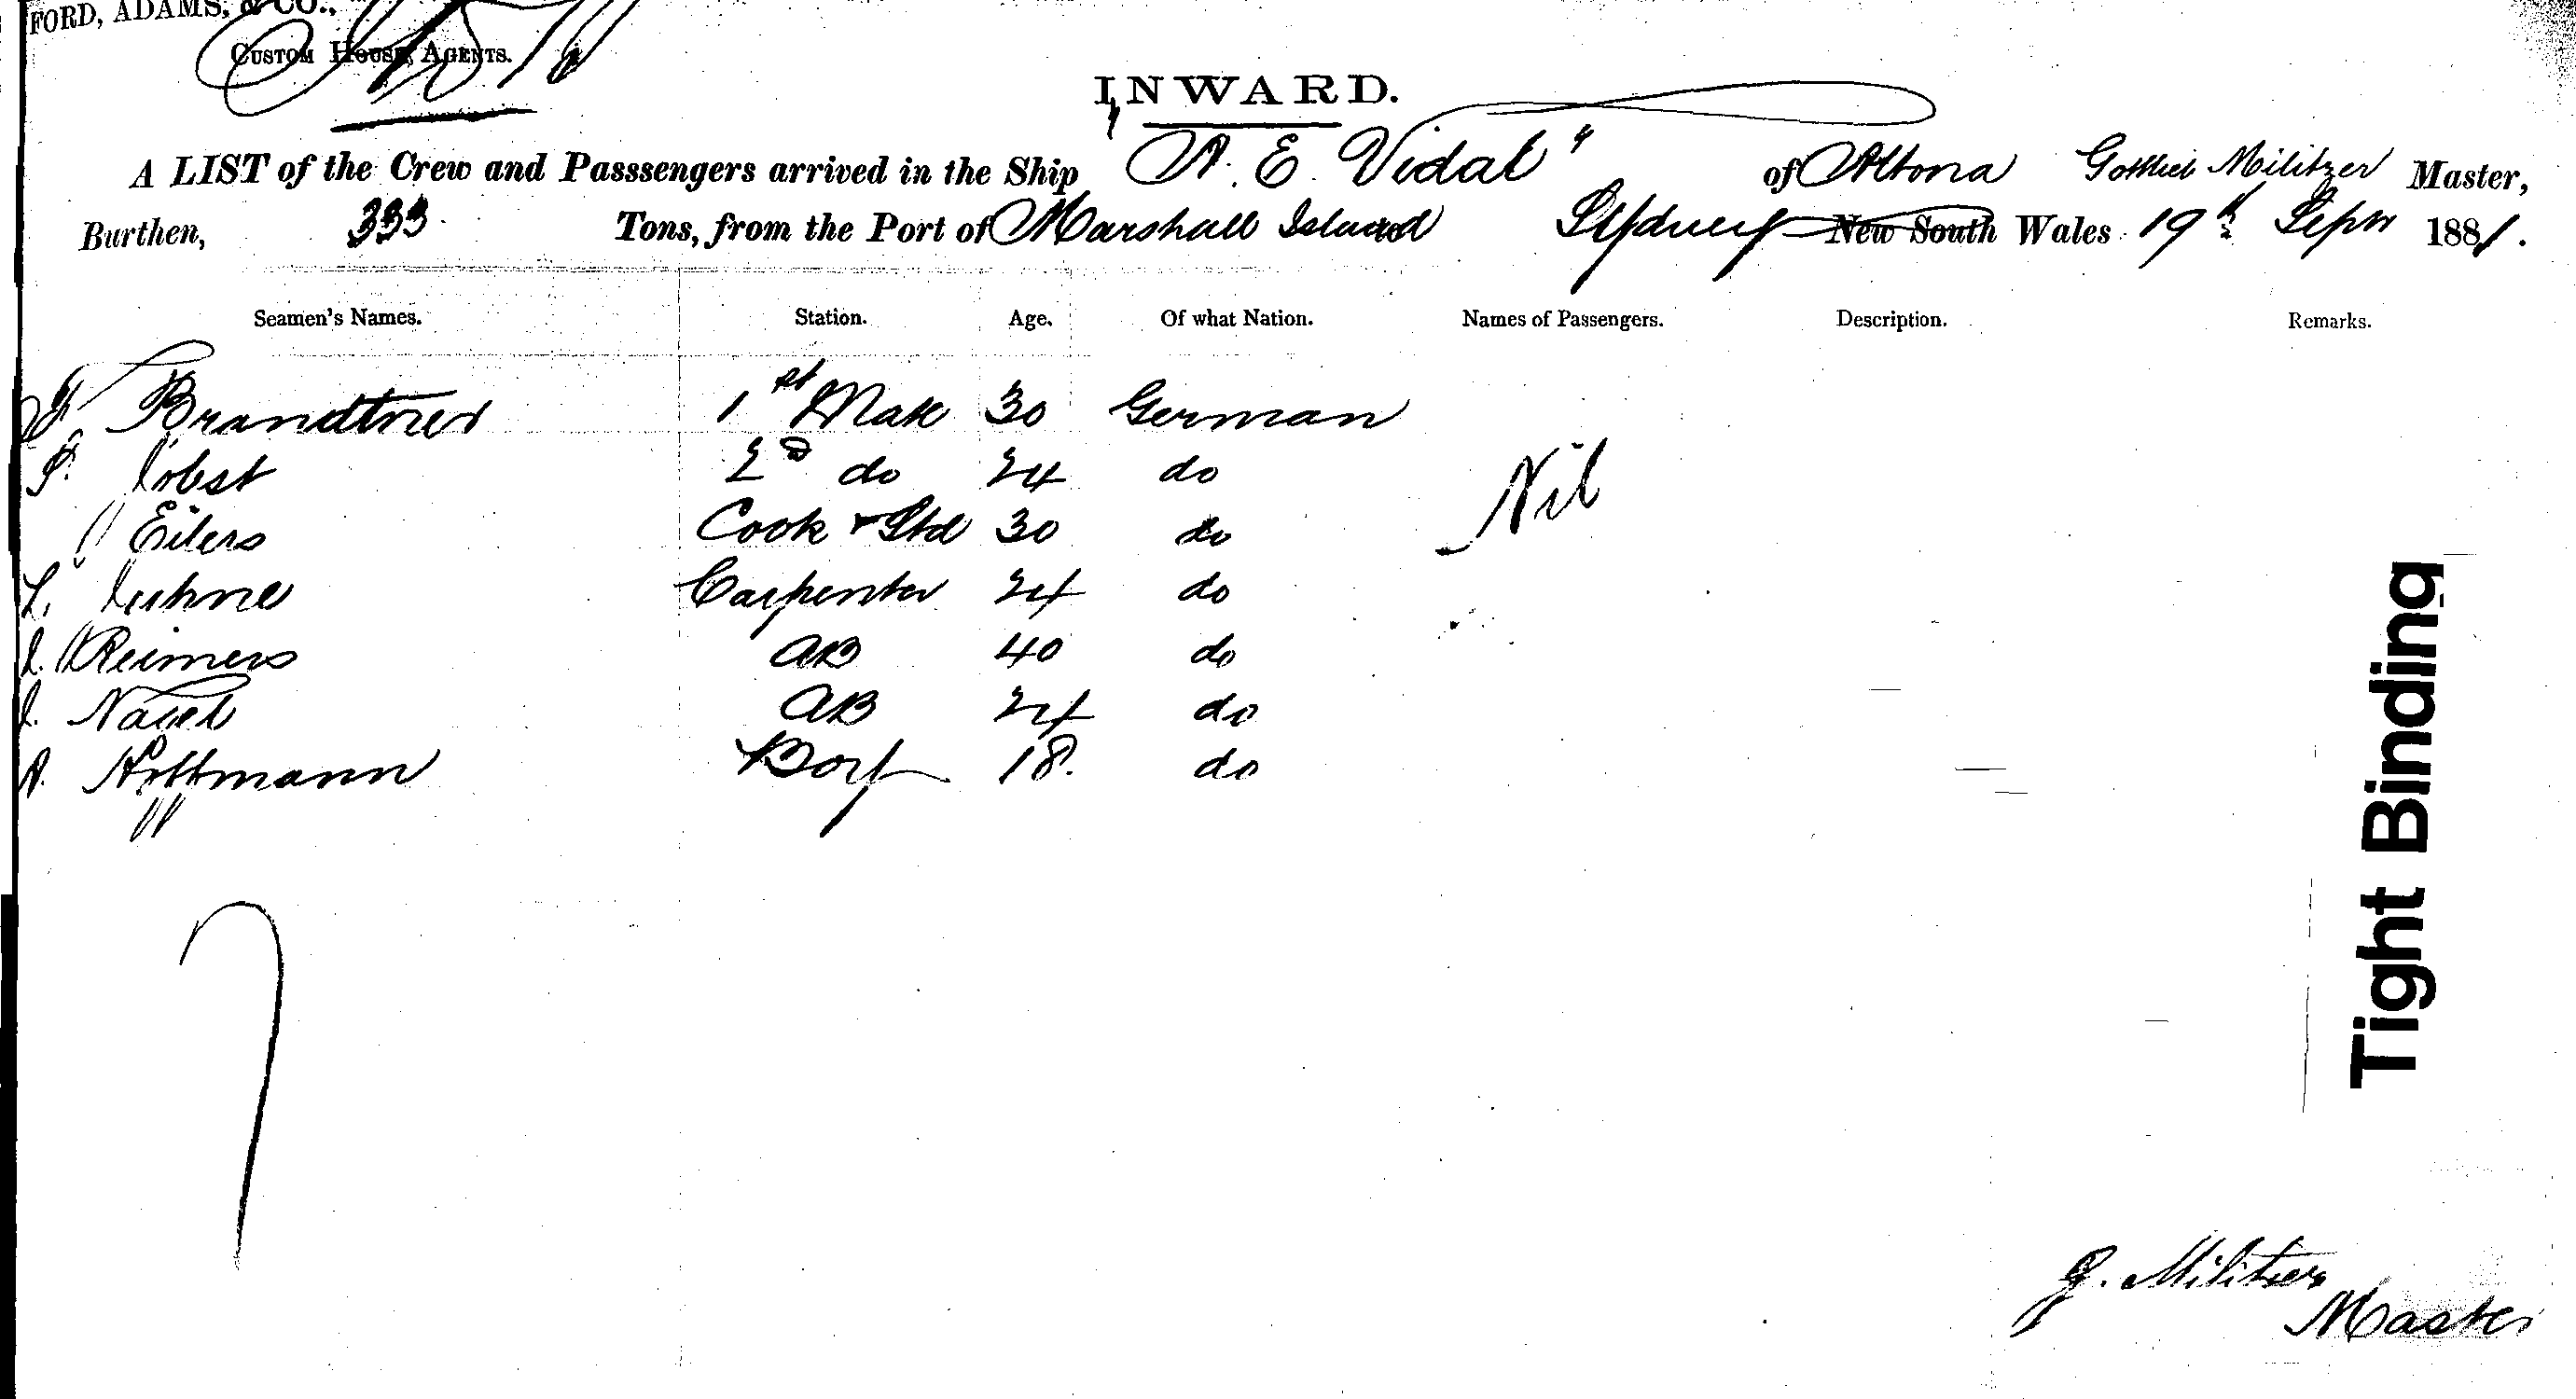 FORD, ADAMS, & CO.,
CUSTOM HOUSE AGENTS.
INWARD.
A LIST of the Crew and Passsengers arrived in the Ship "A. E. Vidal" of Altona Gottlieb Militzer Master,
Burthen, 333 Tons, from the Port of Marshall Island Sydney New South Wales 19th Sepr 1881.
Seamen's Names. Station. Age. Of what Nation. Names of Passengers. Description. Remarks.
Brandtner 1st Mate 30 German
P. Jobst 2nd do 24 do
Nil
Eilers Cook & Std 30 do
L. Carpenter 24 do
Reimers AB 40 do
Nagel AB 24 do
A. Hoffmann Boy 18. do
Tight Binding
G. Militzer
Master